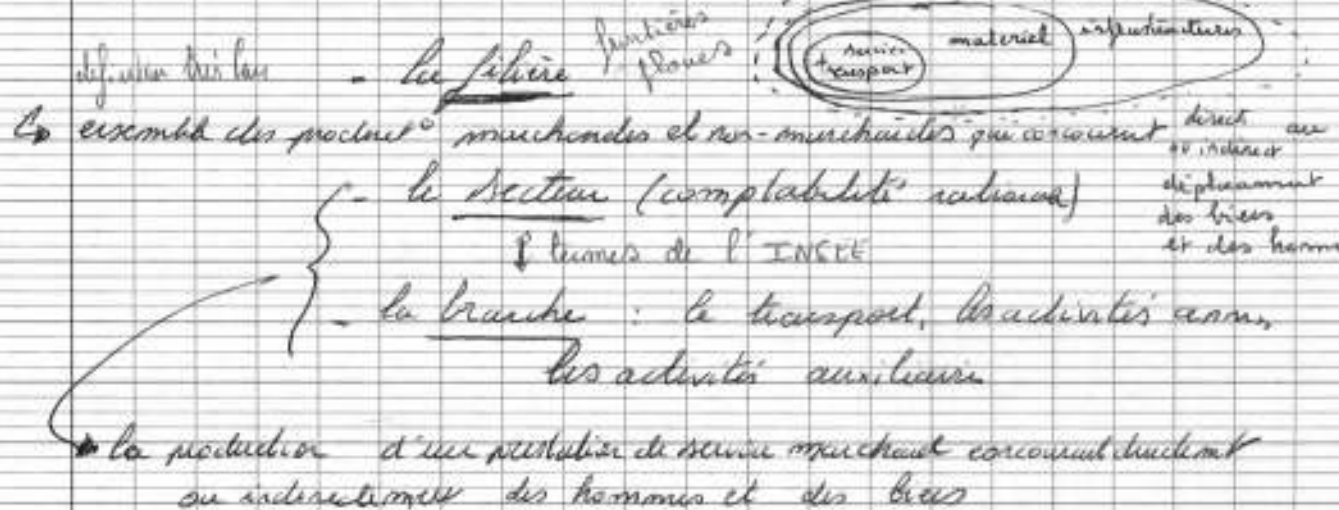 définition très large - la filière frontières floues
service transport matériel infrastructures
↳ ensemble des product° marchandes et non-marchandes qui concourent direct ou indirect au déplacement des biens et des homm
- le secteur (comptabilité nationale)
↕ termes de l'INSEE
- la branche : le transport, les activités annx,
les activités auxiliaires
la production d'une prestation de service marchand concourant directemt
ou indirectement des hommes et des biens